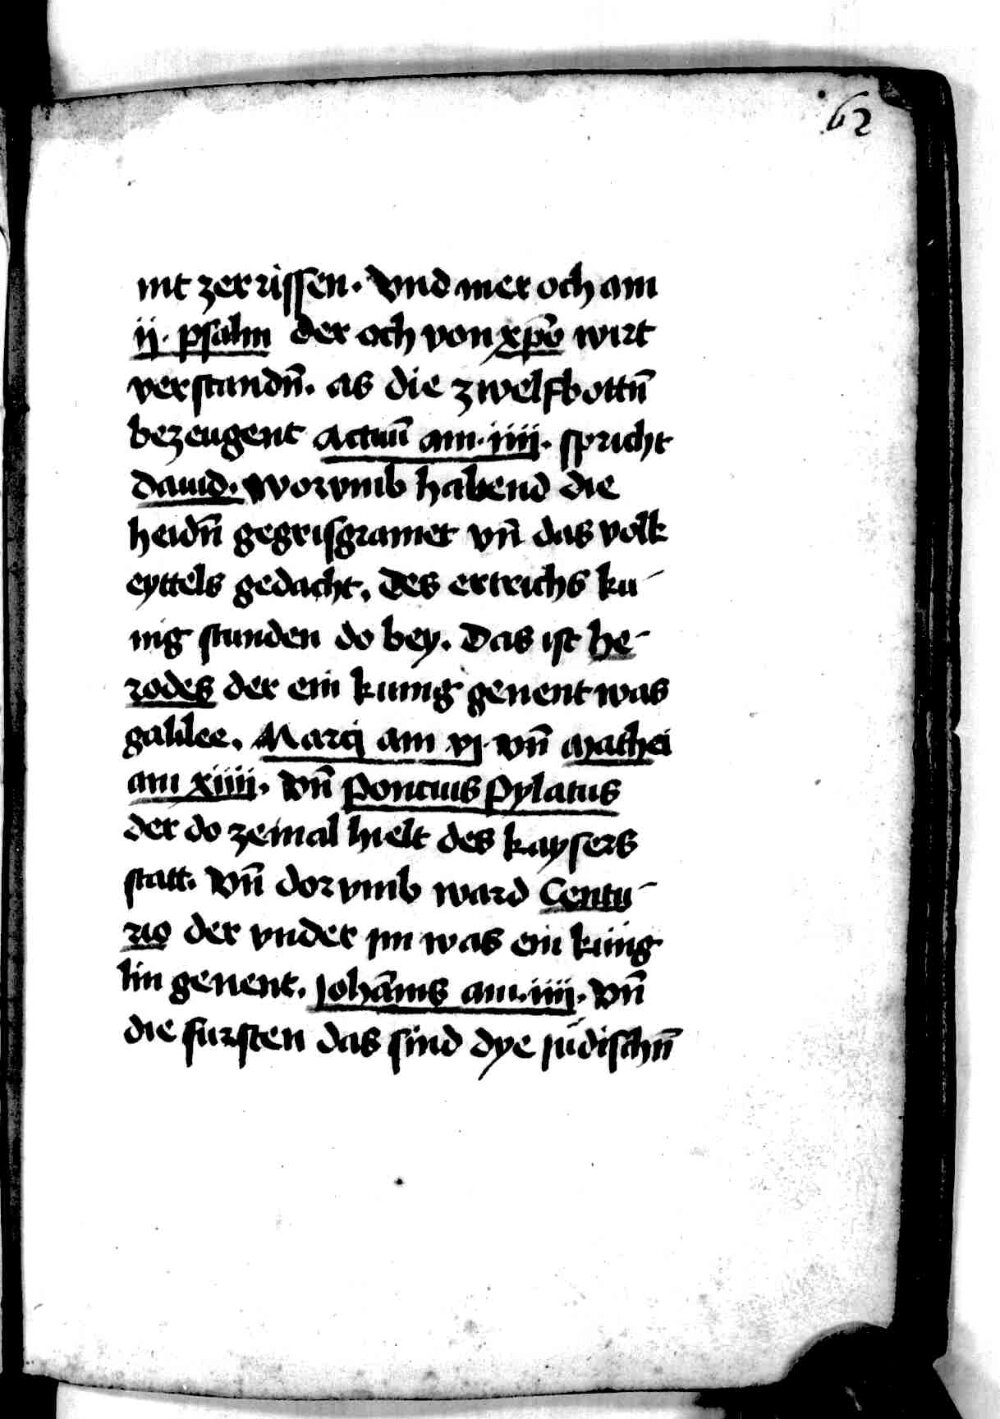 62
nit zerrissen. Vnd mer och am
ij. psalm der och von xp̄o wirt
verstandn̄. as die zwelfbottn̄
bezeugent Actuū am. iiij. spricht
dauid. Worvmb habend die
heidn̄ gegrisgramet vn̄ das volk
eyttels gedacht. Des ertrichs ku-
nig stunden do bey. Das ist he-
rodes der ein kunig genent was
galilee. Marci am vj. vn̄ Mathei
am xiiij. Vn̄ Poncius Pylatus
der do zemal hielt des kaysers
statt. Vn̄ dorvmb ward Centu-
rio der vnder im was ein kúnig
lin genent. Joha͞nis am. iiij. Vn̄
die fursten das sind dye júdischn̄